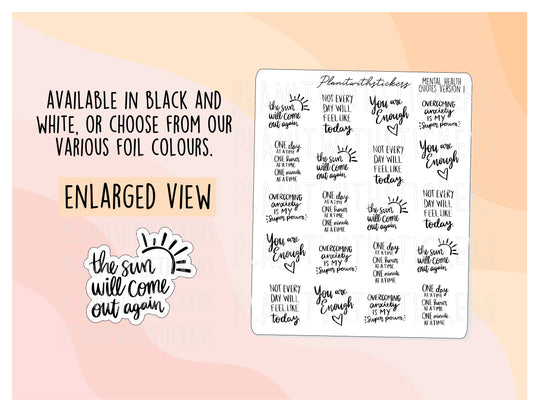 AVAILABLE IN BLACK AND
WHITE, OR CHOOSE FROM OUR
VARIOUS FOIL COLOURS.
ENLARGED VIEW
the sun
will come
out again
Planitwithstickers
MENTAL HEALTH
QUOTES VERSION 1
the sun
will come
out again
NOT EVERY
DAY WILL
FEEL LIKE
today.
You are
Enough
OVERCOMING
anxiety
IS MY
Super power!
ONE day
AT A TIME
ONE hour
AT A TIME
ONE minute
AT A TIME
the sun
will come
out again
NOT EVERY
DAY WILL
FEEL LIKE
today.
You are
Enough
OVERCOMING
anxiety
IS MY
Super power!
ONE day
AT A TIME
ONE hour
AT A TIME
ONE minute
AT A TIME
the sun
will come
out again
NOT EVERY
DAY WILL
FEEL LIKE
today.
You are
Enough
OVERCOMING
anxiety
IS MY
Super power!
ONE day
AT A TIME
ONE hour
AT A TIME
ONE minute
AT A TIME
the sun
will come
out again
NOT EVERY
DAY WILL
FEEL LIKE
today.
You are
Enough
OVERCOMING
anxiety
IS MY
Super power!
ONE day
AT A TIME
ONE hour
AT A TIME
ONE minute
AT A TIME